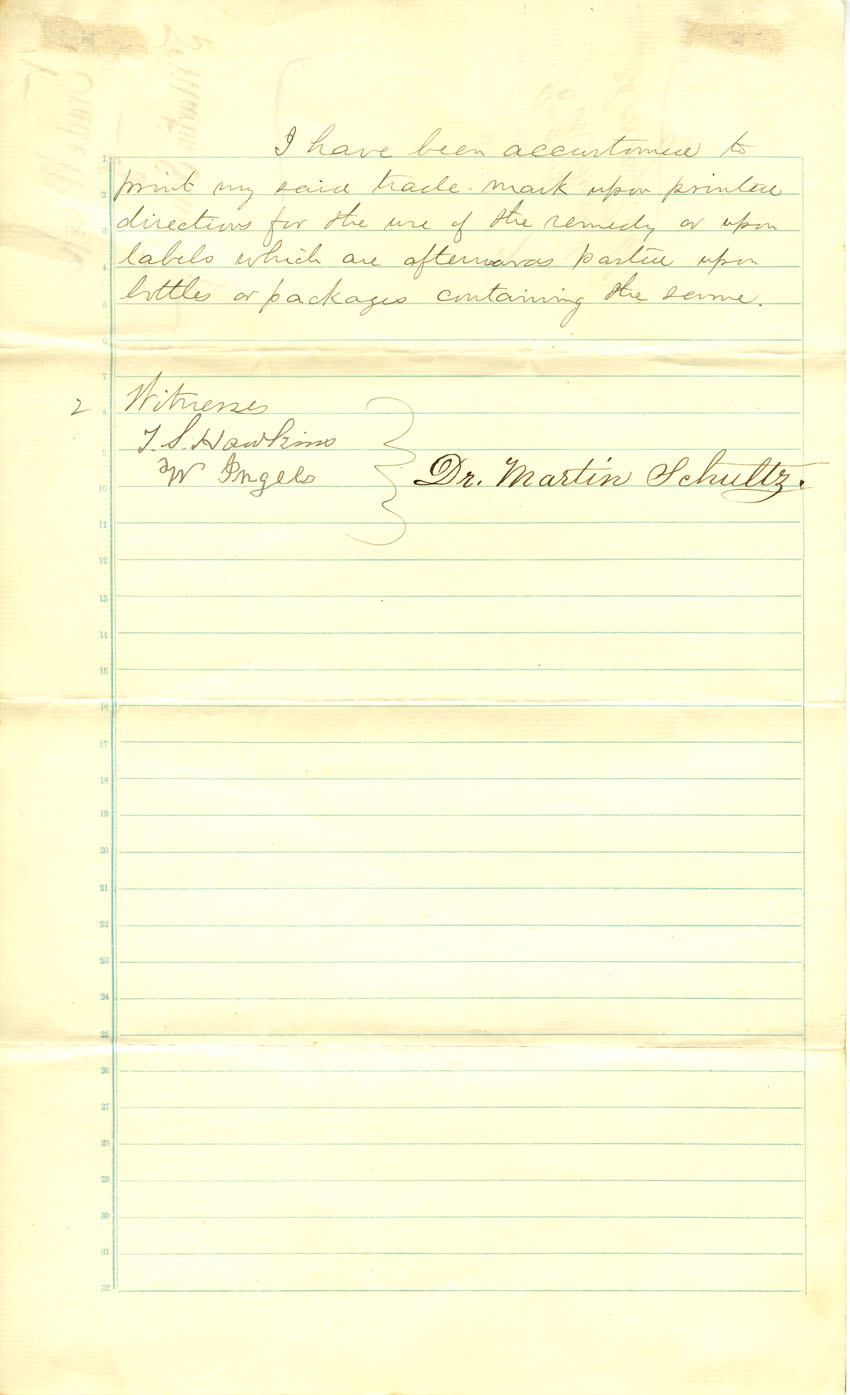 I have been accustomed to
print my said trade-mark upon printed
directions for the use of the remedy or upon
labels which are afterwards pasted upon
bottles or packages containing the same.
2 Witnesses
T. S. Hawkins
W Ingels
Dr. Martin Schultz.
1
2
3
4
5
6
7
8
9
10
11
12
13
14
15
16
17
18
19
20
21
22
23
24
25
26
27
28
29
30
31
32